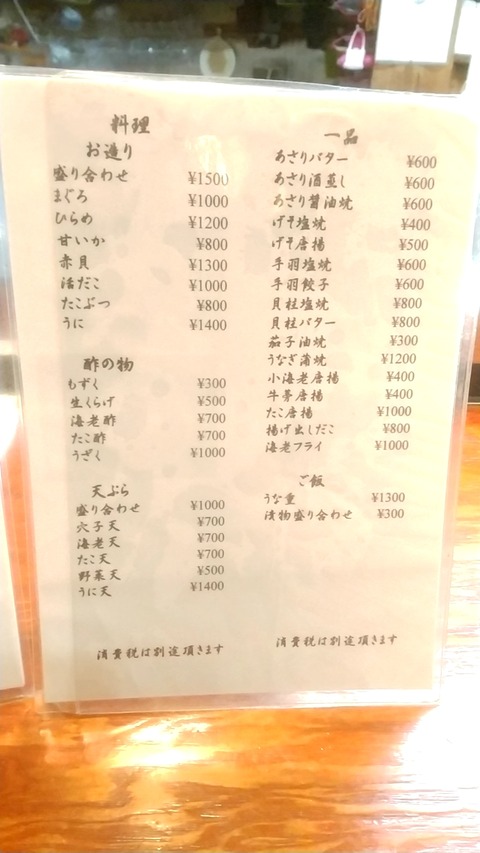 料理
お造り
盛り合わせ ¥1500
まぐろ ¥1000
ひらめ ¥1200
甘いか ¥800
赤貝 ¥1300
活だこ ¥1000
たこぶつ ¥800
うに ¥1400
酢の物
もずく ¥300
生くらげ ¥500
海老酢 ¥700
たこ酢 ¥700
うざく ¥1000
天ぷら
盛り合わせ ¥1000
穴子天 ¥700
海老天 ¥700
たこ天 ¥700
野菜天 ¥500
うに天 ¥1400
消費税は別途頂きます
一品
あさりバター ¥600
あさり酒蒸し ¥600
あさり醤油焼 ¥600
げそ塩焼 ¥400
げそ唐揚 ¥500
手羽塩焼 ¥600
手羽餃子 ¥600
貝柱塩焼 ¥800
貝柱バター ¥800
茄子油焼 ¥300
うなぎ蒲焼 ¥1200
小海老唐揚 ¥400
牛蒡唐揚 ¥400
たこ唐揚 ¥1000
揚げ出しだこ ¥800
海老フライ ¥1000
ご飯
うな重 ¥1300
漬物盛り合わせ ¥300
消費税は別途頂きます